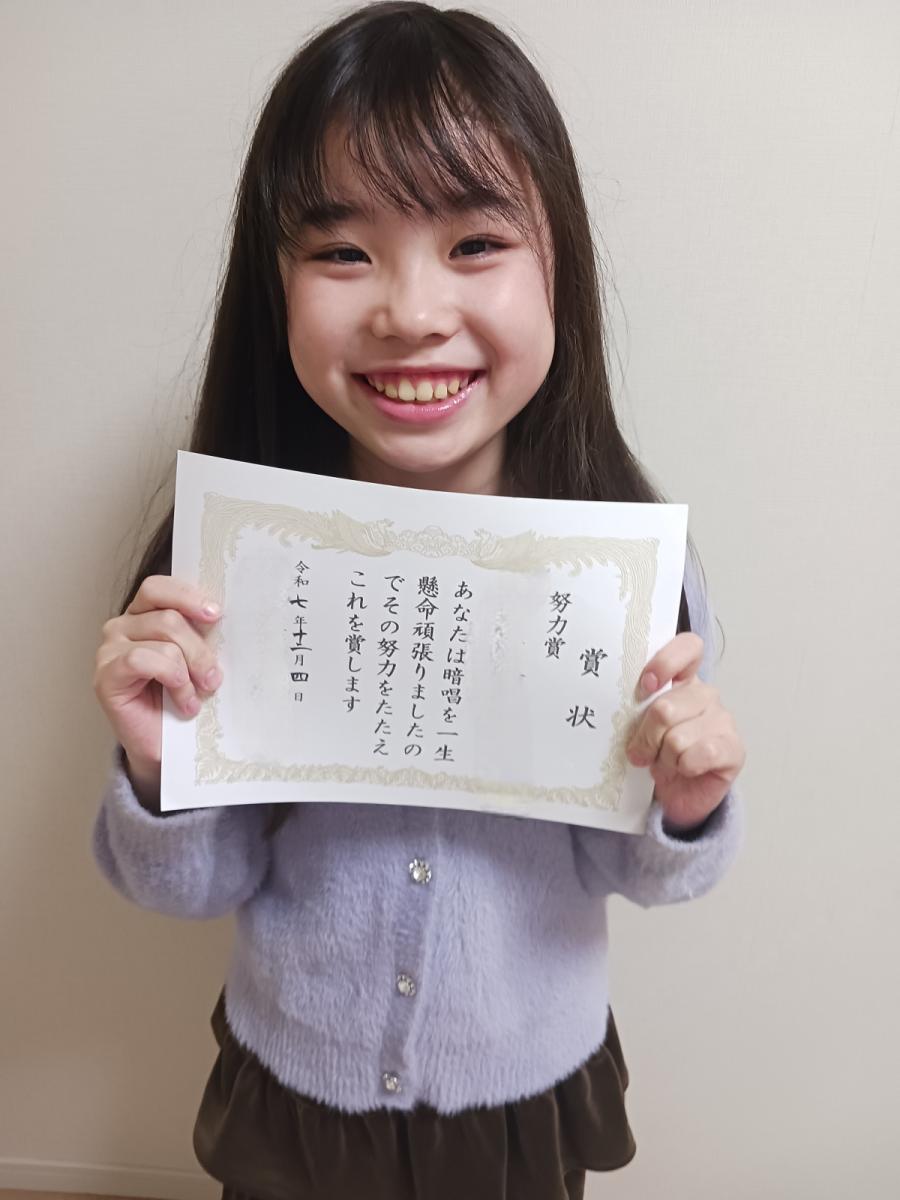 賞状
努力賞
あなたは暗唱を一生
懸命頑張りましたの
でその努力をたたえ
これを賞します
令和七年十二月四日